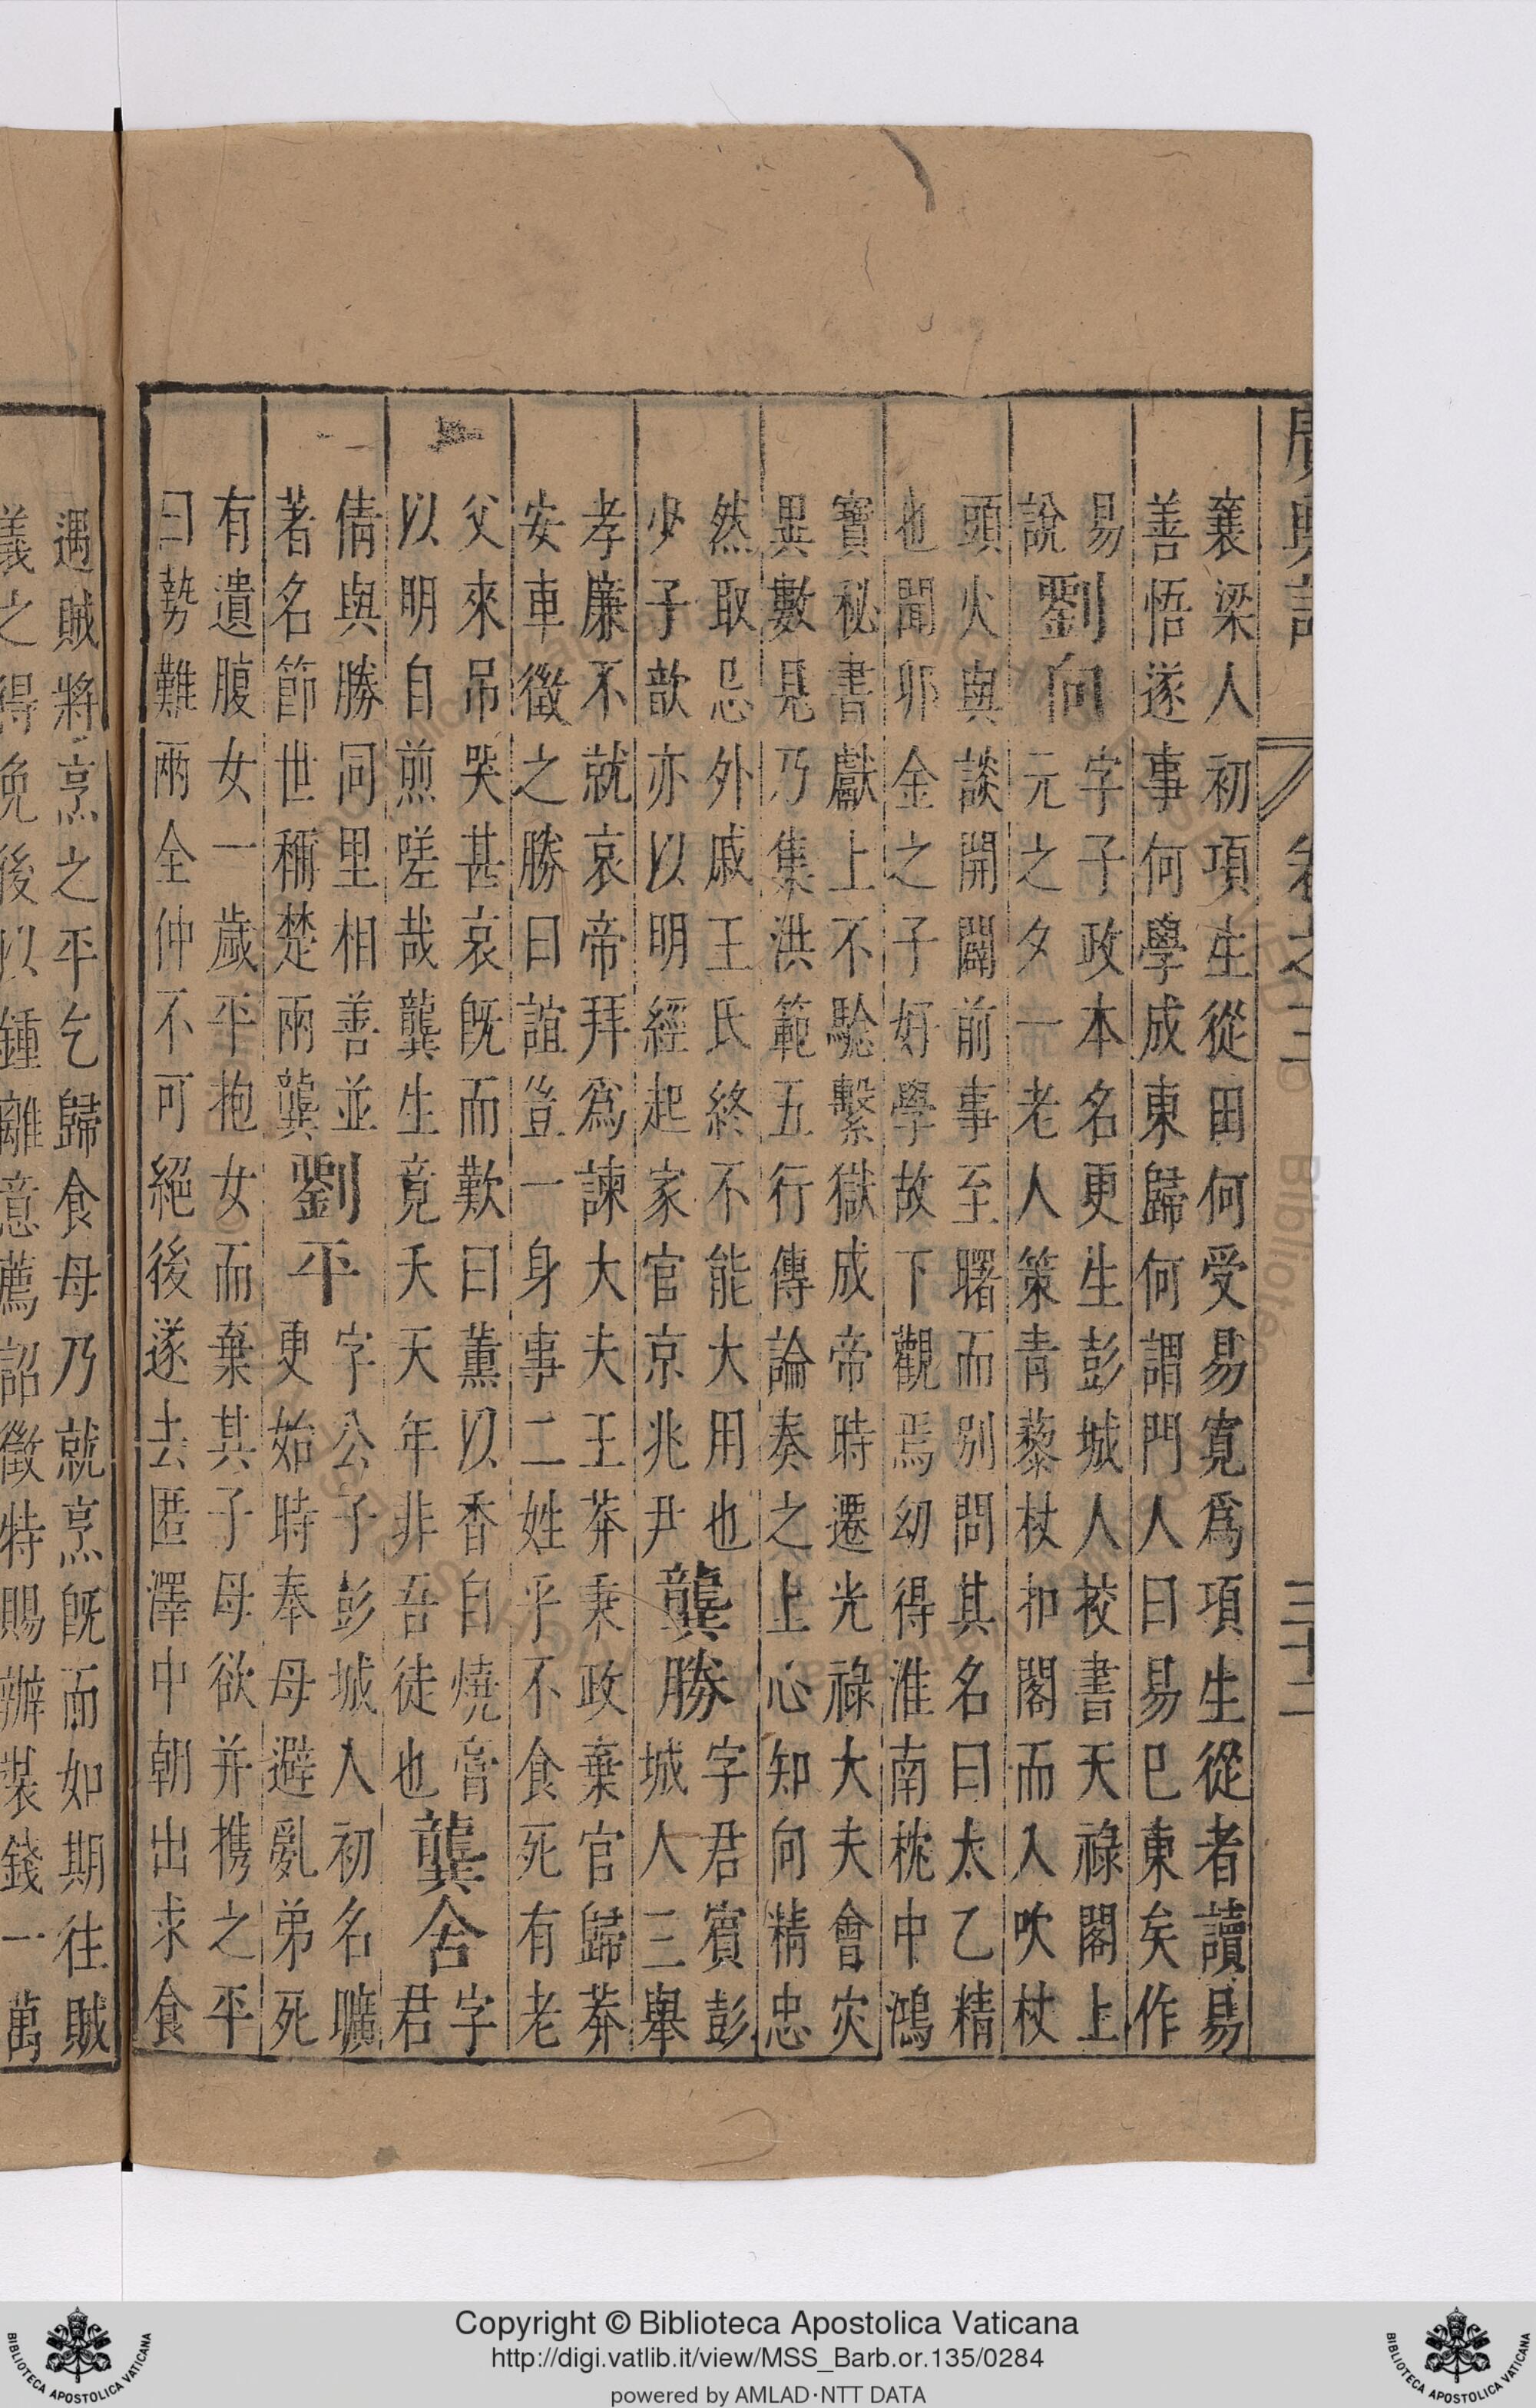 廣輿記 卷之三 三十二
襄梁人初項生從田何受易寬爲項生從者讀易
善悟遂事何學成東歸何謂門人曰易巳東矣作
易
說
劉向
字子政本名更生彭城人校書天祿閣上
元之夕一老人策青黎杖扣閣而入吹杖
頭火與談開闢前事至曙而别問其名曰太乙精
也聞卯金之子好學故下觀焉幼得淮南枕中鴻
寶秘書獻上不驗繫獄成帝時遷光祿大夫會灾
異數見乃集洪範五行傳論奏之上心知向精忠
然取忌外戚王氏終不能大用也
少子歆亦以明經起家官京兆尹
龔勝
字君賓彭
城人三舉
孝廉不就哀帝拜爲諫大夫王莽秉政棄官歸莽
安車徵之勝曰誼豈一身事二姓乎不食死有老
父來吊哭甚哀旣而歎曰薰以香自燒膏
以明自煎嗟哉龔生竟夭天年非吾徒也
龔舍
字
君
倩與勝同里相善並
著名節世稱楚兩龔
劉平
字公子彭城人初名曠
更始時奉母避亂弟死
有遺腹女一歲平抱女而棄其子母欲并携之平
曰勢難兩全仲不可絕後遂去匿澤中朝出求食
遇賊將烹之平乞歸食母乃就烹旣而如期往賊
義之得免後以鍾離意薦詔徵特賜辦裝錢一萬
Copyright © Biblioteca Apostolica Vaticana
http://digi.vatlib.it/view/MSS_Barb.or.135/0284
powered by AMLAD·NTT DATA
BIBLIOTECA APOSTOLICA VATICANA
BIBLIOTECA APOSTOLICA VATICANA